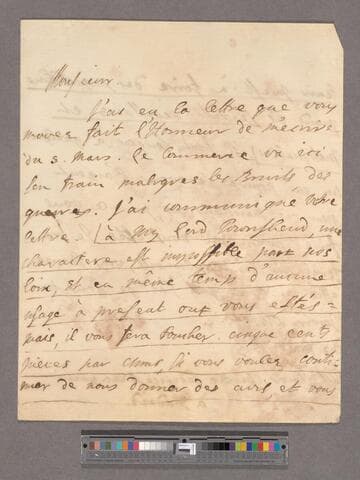 Monsieur
J'ai eu la lettre que vous
mavez fait l'Honneur de m'ecrire
du 5. Mars. le Commerce va ici
son train malgres les Bruits des
guerres. J'ai communiqué vôtre
lettre. à My Lord Townshend, une
charactere est par nos
loix, et en même temps d'aucune
usage à present ou vous estes =
mais, il vous fera toucher cinque cent
pieces par si vous voulez conti-
nuer de nous donner des avis, et vous